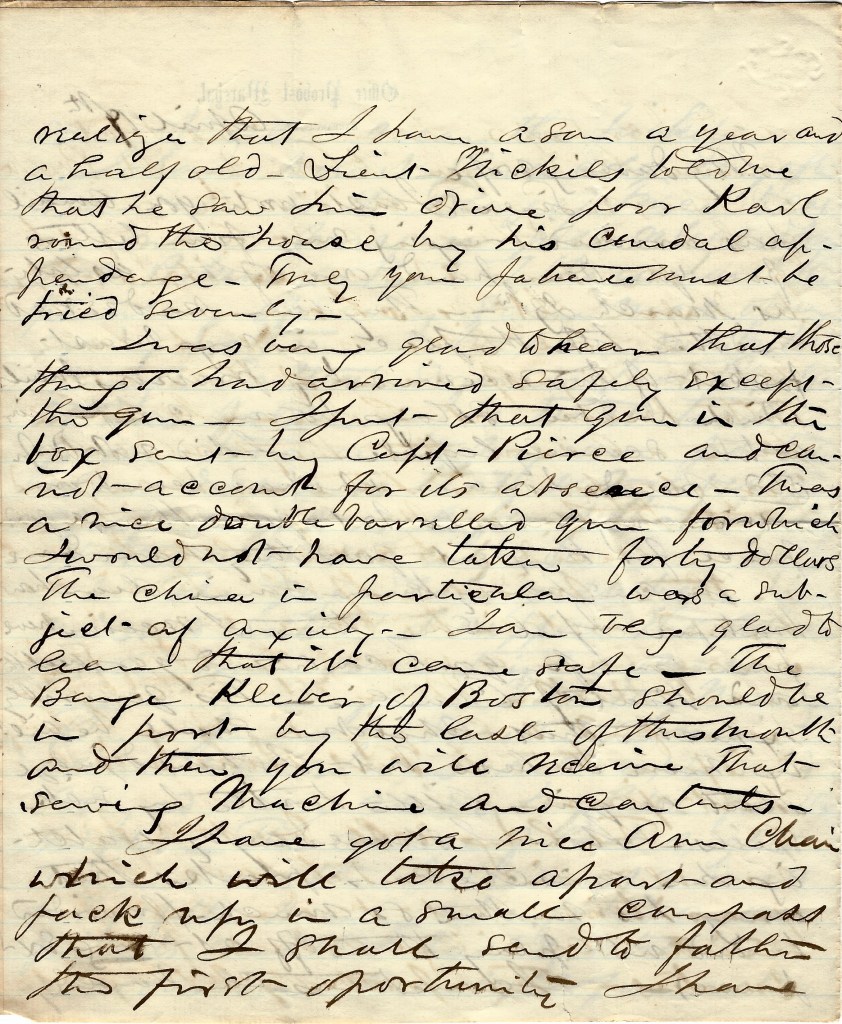 realize that I have a son a year and
a half old - Lieut - Nickils told me
that he saw him drive poor Karl
round the house by his caudal ap-
pendage - Truly your patience must be
tried severely -
I was very glad to hear that those
things had arrived safely except -
the gun - I put - that gun in the
box sent - by Capt - Pierce and can-
not - account for its absence - Twas
a nice double barrelled gun for which
I would not - have taken forty dollars
The china in particular was a sub-
ject - of anxiety - I am very glad to
learn that it came safe - The
Barge Kleber of Boston should be
in port - by the last of this month
and then you will receive that -
sewing Machine and contents -
I have got a nice Arm Chair
which will take apart - and
pack up in a small compass
that I shall send to father
the first - oportunity I have
Office Provost Marshal